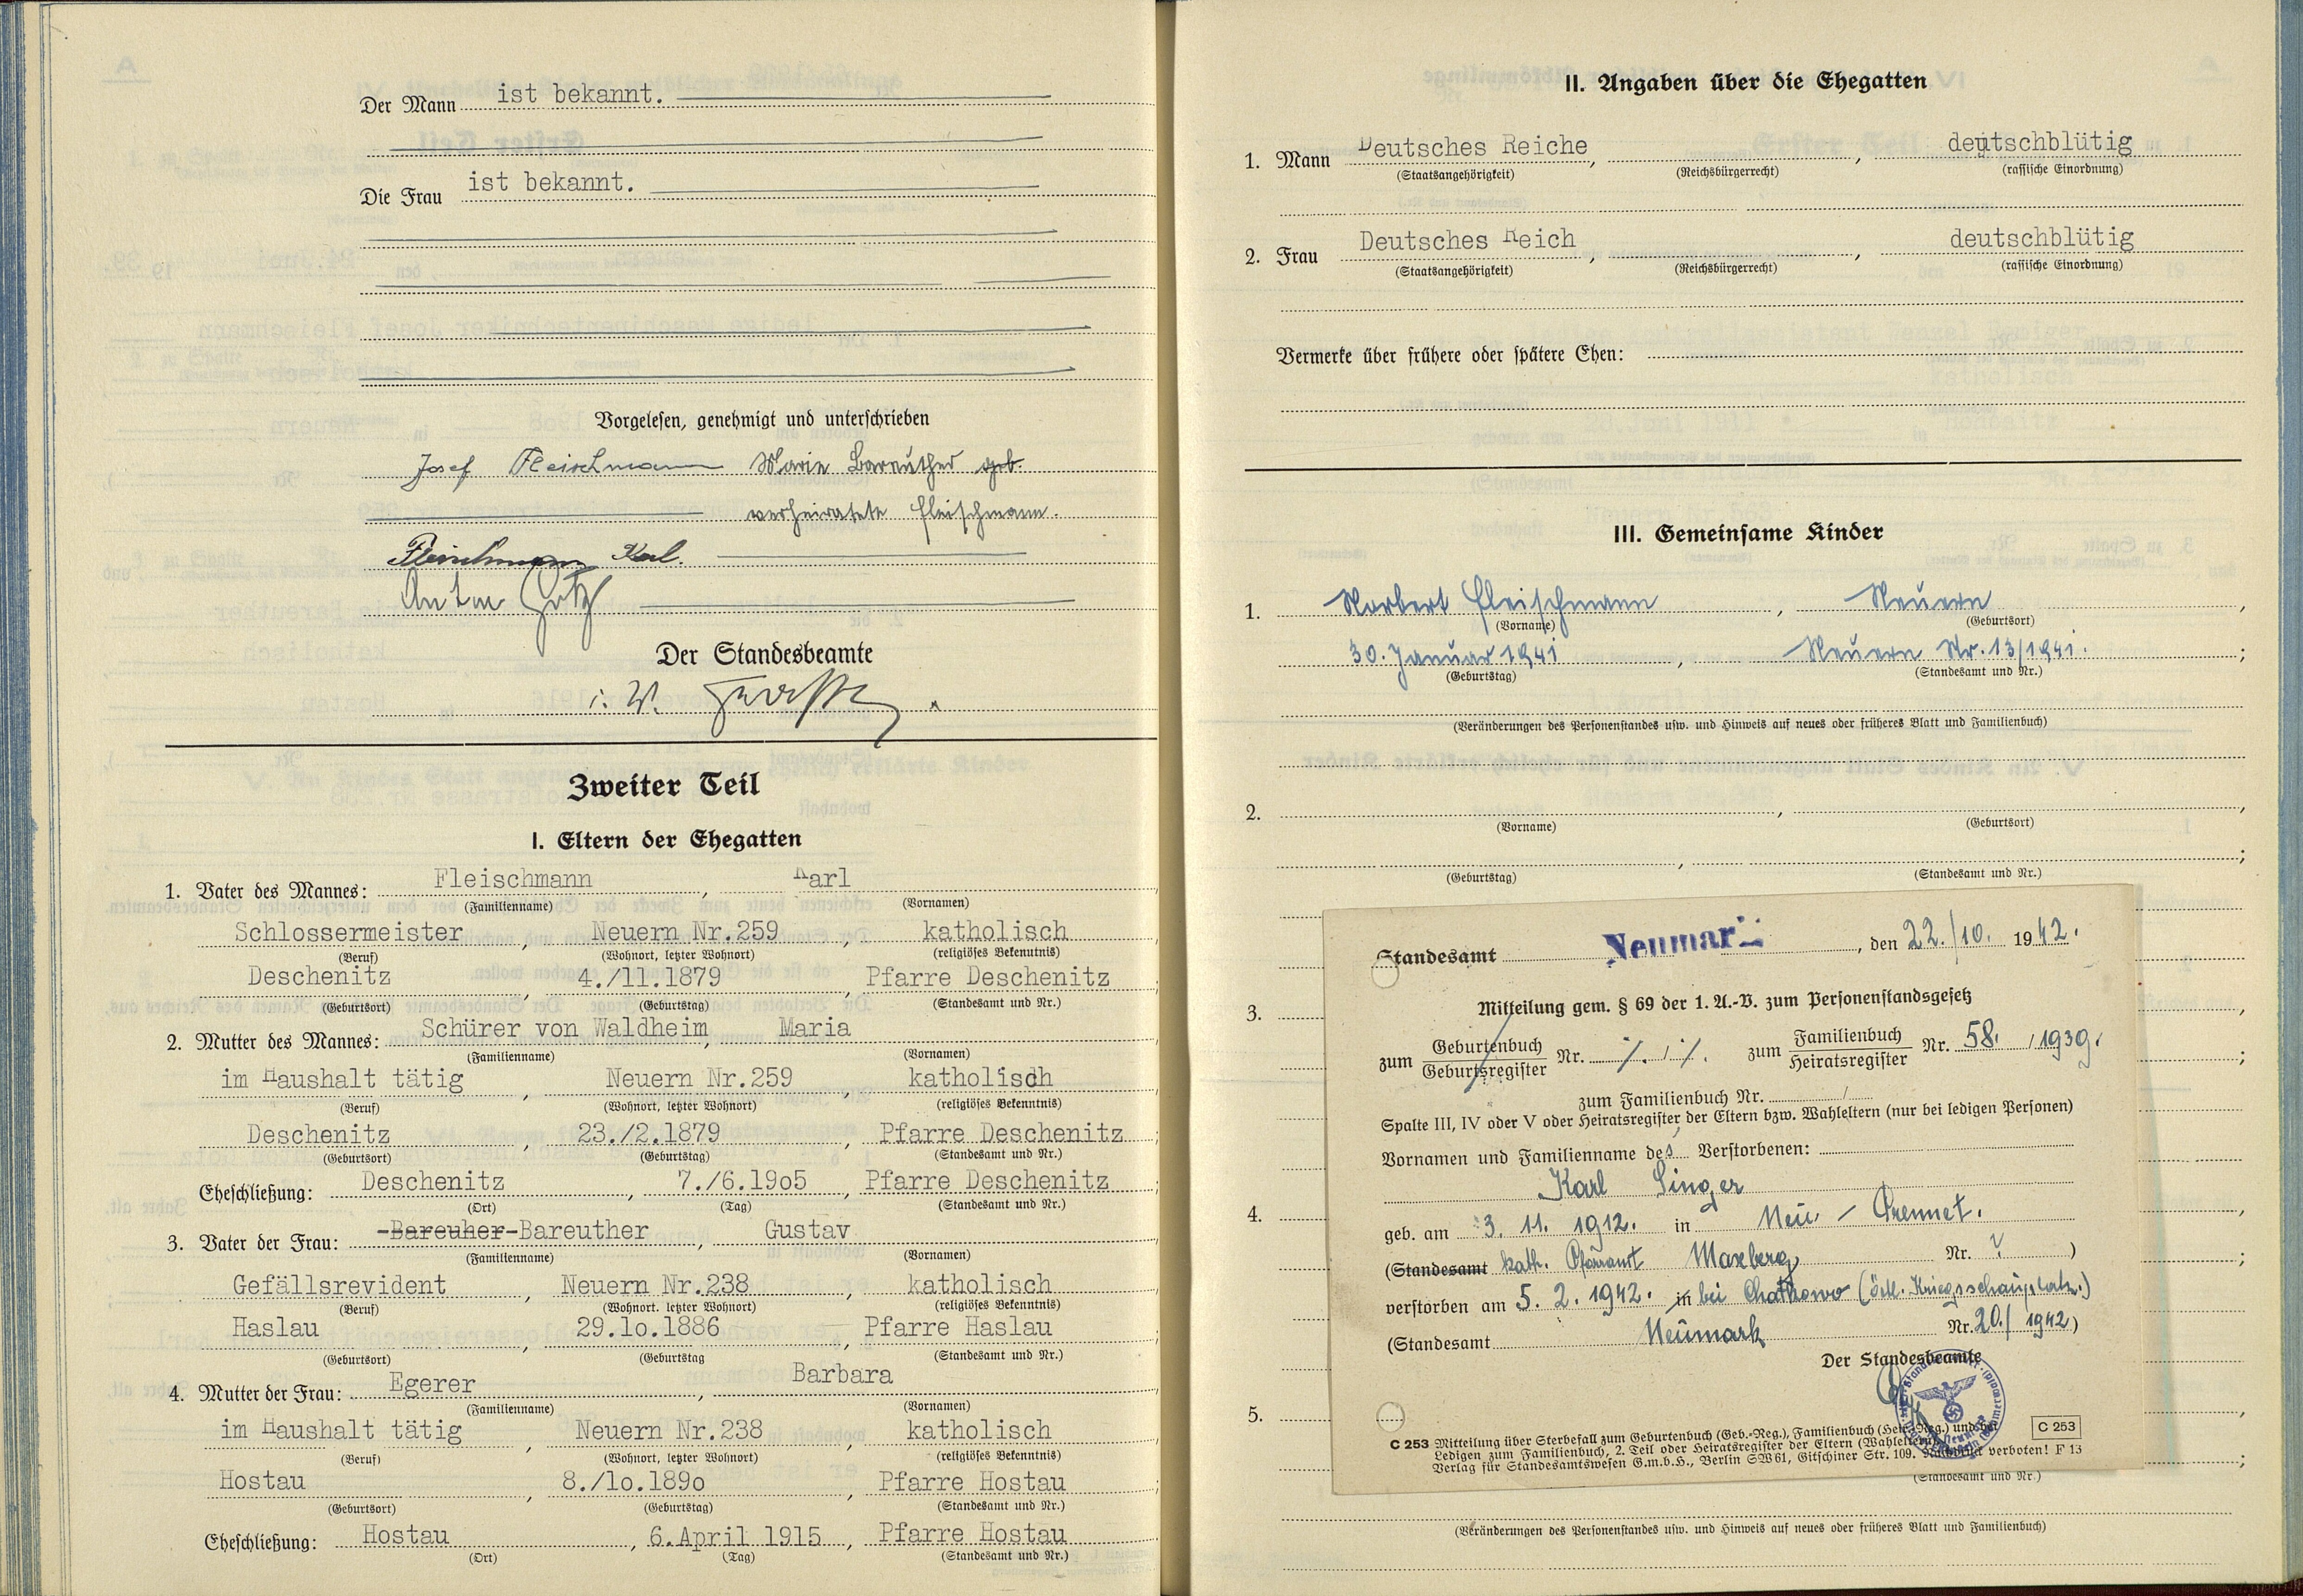 Der Mann ist bekannt.
Die Frau ist bekannt.
Vorgelesen, genehmigt und unterschrieben
Josef Fleischmann Marie Bareuther geb.
verheiratete Fleischmann.
Fleischmann Karl.
Anton Götz
Der Standesbeamte
i. V.
Zweiter Teil
I. Eltern der Ehegatten
1. Vater des Mannes: Fleischmann, Karl
(Familienname) (Vornamen)
Schlossermeister, Neuern Nr.259, katholisch
(Beruf) (Wohnort, letzter Wohnort) (religiöses Bekenntnis)
Deschenitz, 4./11.1879, Pfarre Deschenitz
(Geburtsort) (Geburtstag) (Standesamt und Nr.)
2. Mutter des Mannes: Schürer von Waldheim, Maria
(Familienname) (Vornamen)
im Haushalt tätig, Neuern Nr.259, katholisch
(Beruf) (Wohnort, letzter Wohnort) (religiöses Bekenntnis)
Deschenitz, 23./2.1879, Pfarre Deschenitz;
(Geburtsort) (Geburtstag) (Standesamt und Nr.)
Eheschließung: Deschenitz, 7./6.19o5, Pfarre Deschenitz
(Ort) (Tag) (Standesamt und Nr.)
3. Vater der Frau: -Bareuher-Bareuther, Gustav
(Familienname) (Vornamen)
Gefällsrevident, Neuern Nr.238, katholisch
(Beruf) (Wohnort. letzter Wohnort) (religiöses Bekenntnis)
Haslau, 29.1o.1886, Pfarre Haslau
(Geburtsort) (Geburtstag (Standesamt und Nr.)
4. Mutter der Frau: Egerer, Barbara
(Familienname) (Vornamen)
im Haushalt tätig, Neuern Nr.238, katholisch
(Beruf) (Wohnort, letzter Wohnort) (religiöses Bekenntnis)
Hostau, 8./1o.189o, Pfarre Hostau
(Geburtsort) (Geburtstag) (Standesamt und Nr.)
Eheschließung: Hostau, 6.April 1915, Pfarre Hostau
(Ort) (Tag) (Standesamt und Nr.)
II. Angaben über die Ehegatten
1. Mann Deutsches Reiche, , deutschblütig
(Staatsangehörigkeit) (Reichsbürgerrecht) (rassische Einordnung)
2. Frau Deutsches Reich, , deutschblütig
(Staatsangehörigkeit) (Reichsbürgerrecht) (rassische Einordnung)
Vermerke über frühere oder spätere Ehen:
III. Gemeinsame Kinder
1. Norbert Fleischmann, Neuern,
(Vorname) (Geburtsort)
30. Januar 1941, Neuern Nr. 13/1941.;
(Geburtstag) (Standesamt und Nr.)
(Veränderungen des Personenstandes usw. und Hinweis auf neues oder früheres Blatt und Familienbuch)
2. , ,
(Vorname) (Geburtsort)
, ;
(Geburtstag) (Standesamt und Nr.)
Standesamt Neumark, den 22./10. 1942.
3. Mitteilung gem. § 69 der 1. A.-V. zum Personenstandsgesetz
zum Geburtenbuch Nr. ./. / ./. zum Familienbuch Nr. 58. / 1939.
Geburtsregister Heiratsregister
zum Familienbuch Nr. /
Spalte III, IV oder V oder Heiratsregister der Eltern bzw. Wahleltern (nur bei ledigen Personen)
Vornamen und Familienname des Verstorbenen:
Karl Singer
4. geb. am 3. 11. 1912. in Neu-Prennet.
(Standesamt kath. Pfarramt Maxberg Nr. ? )
verstorben am 5. 2. 1942. in bei Chatkowo (östl. Kriegsschauplatz.)
(Standesamt Neumark Nr. 20./1942)
Der Standesbeamte
5. C 253
C 253 Mitteilung über Sterbefall zum Geburtenbuch (Geb.-Reg.), Familienbuch (Heir.-Reg.) und bei
Ledigen zum Familienbuch, 2. Teil oder Heiratsregister der Eltern (Wahleltern).
Verlag für Standesamtswesen G.m.b.H., Berlin SW 61, Gitschiner Str. 109. Nachdruck verboten! F 13
(Standesamt und Nr.)
(Veränderungen des Personenstandes usw. und Hinweis auf neues oder früheres Blatt und Familienbuch)